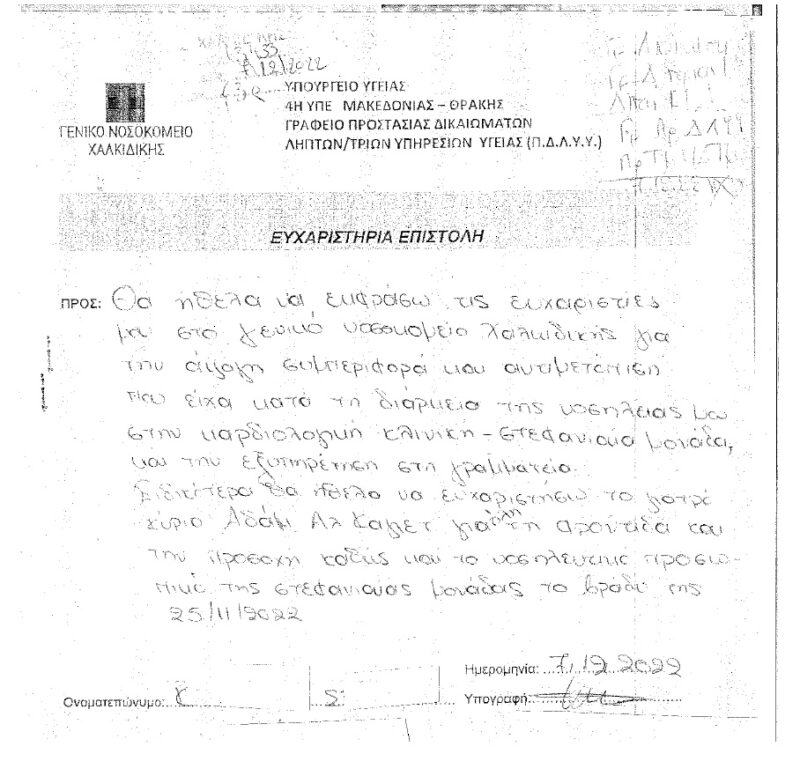 33
12/2022
ΓΕΝΙΚΟ ΝΟΣΟΚΟΜΕΙΟ
ΧΑΛΚΙΔΙΚΗΣ
ΥΠΟΥΡΓΕΙΟ ΥΓΕΙΑΣ
4Η ΥΠΕ ΜΑΚΕΔΟΝΙΑΣ – ΘΡΑΚΗΣ
ΓΡΑΦΕΙΟ ΠΡΟΣΤΑΣΙΑΣ ΔΙΚΑΙΩΜΑΤΩΝ
ΛΗΠΤΩΝ/ΤΡΙΩΝ ΥΠΗΡΕΣΙΩΝ ΥΓΕΙΑΣ (Π.Δ.Λ.Υ.Υ.)
ΕΥΧΑΡΙΣΤΗΡΙΑ ΕΠΙΣΤΟΛΗ
ΠΡΟΣ: Θα ήθελα να εκφράσω τις ευχαριστίες
μου στο γενικό νοσοκομείο Χαλκιδικής για
την άψογη συμπεριφορά και αντιμετώπιση
που είχα κατά τη διάρκεια της νοσηλείας μου
στην καρδιολογική κλινική – στεφανιαία μονάδα,
και την εξυπηρέτηση στη γραμματεία.
Ιδιαίτερα θα ήθελα να ευχαριστήσω το γιατρό
κύριο Αδάμ Αλ για όλη τη φροντίδα και
την προσοχή καθώς και το νοσηλευτικό προσω-
πικό της στεφανιαίας μονάδας το βράδυ της
25/11/2022
Ημερομηνία: 7/12 2022
Ονοματεπώνυμο: Χ Σ
Υπογραφή: